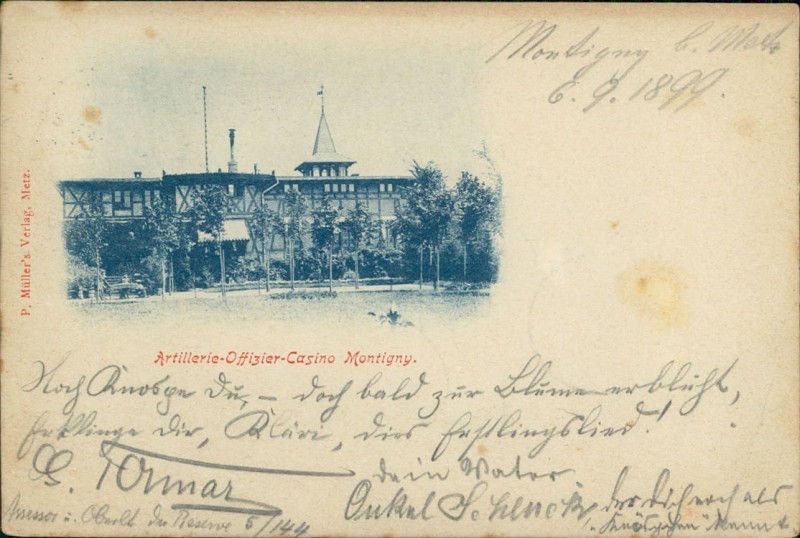 Montigny b. Metz
6. 9. 1899.
P. Müller's Verlag, Metz.
Artillerie-Offizier-Casino Montigny.
Noch Knospe Du, – doch bald zur Blume erblüht,
Erklinge Dir, Kläri, dies Erstlingslied!
dein Vater
G.
Onkel Schenck, der Dich noch als
"Knöspchen" kennt
Assessor u. Oberlt der Reserve 5/144